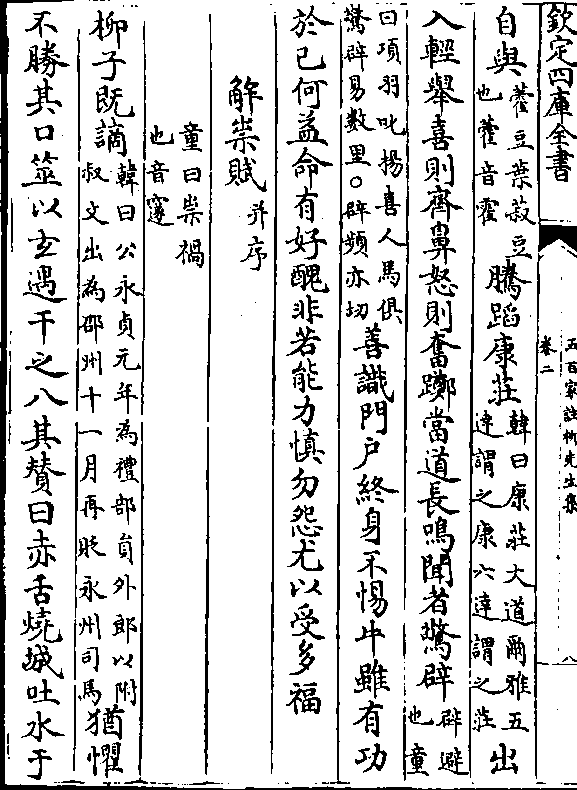 欽定四庫全書
五百家註栁先生集
卷二
八
自與藿豆葉菽豆也藿音霍騰蹈康莊韓曰康莊大道爾雅五達謂之康六達謂之莊出
入輕舉喜則齊鼻怒則奮躑當道長鳴聞者驚辟辟避也童
曰項羽叱揚喜人馬俱驚辟易數里○辟頻亦切善識門户終身不惕牛雖有功
於已何益命有好醜非若能力慎勿怨尤以受多福
解祟賦并序
童曰祟禍也音邃
栁子既謫韓曰公永貞元年為禮部員外郎以附叔文出為邵州十一月再貶永州司馬猶懼
不勝其口筮以玄遇干之八其賛曰赤舌燒城吐水于